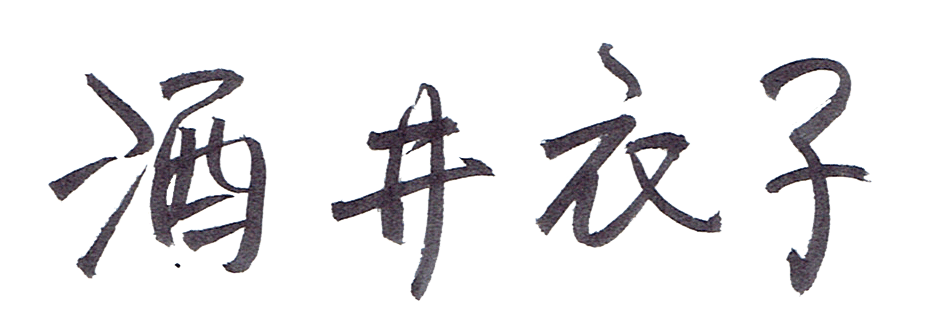 酒井衣子